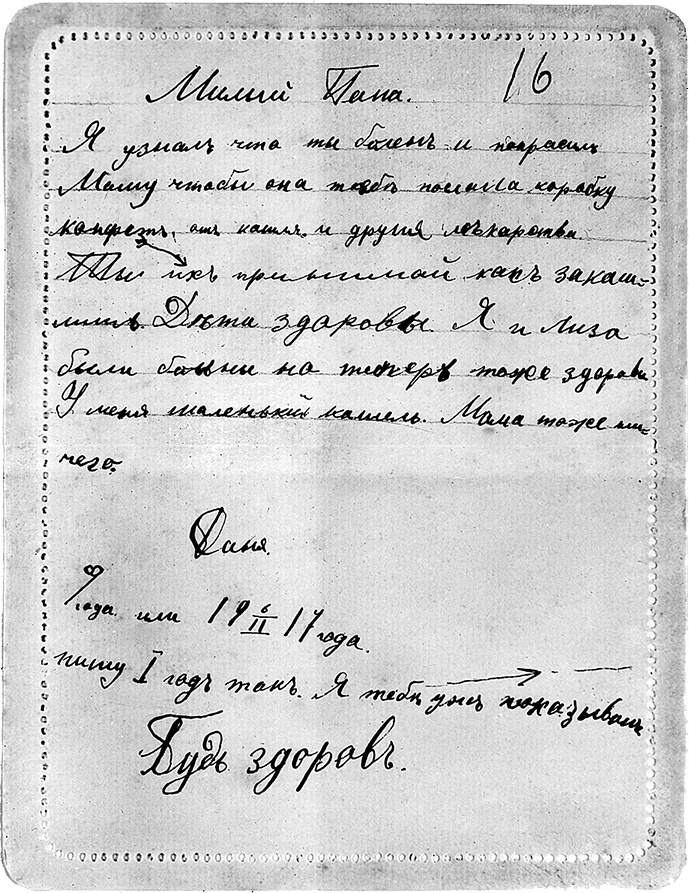 Милый Папа. 16
Я узналъ что ты боленъ и попрасилъ
Машу чтобы она тебѣ послала коробку
конфетъ, отъ кашля и другия лѣкарства.
Ты ихъ принимай какъ закаш-
лишь. Дѣти здоровы. Я и Лиза
были больны но теперь тоже здоровы
У меня маленький кашель. Мама тоже ни-
чего.
Даня.
года или 19 6/II 17 года.
пишу I годъ такъ. Я тебѣ ужъ показывалъ
Будь здоровъ.